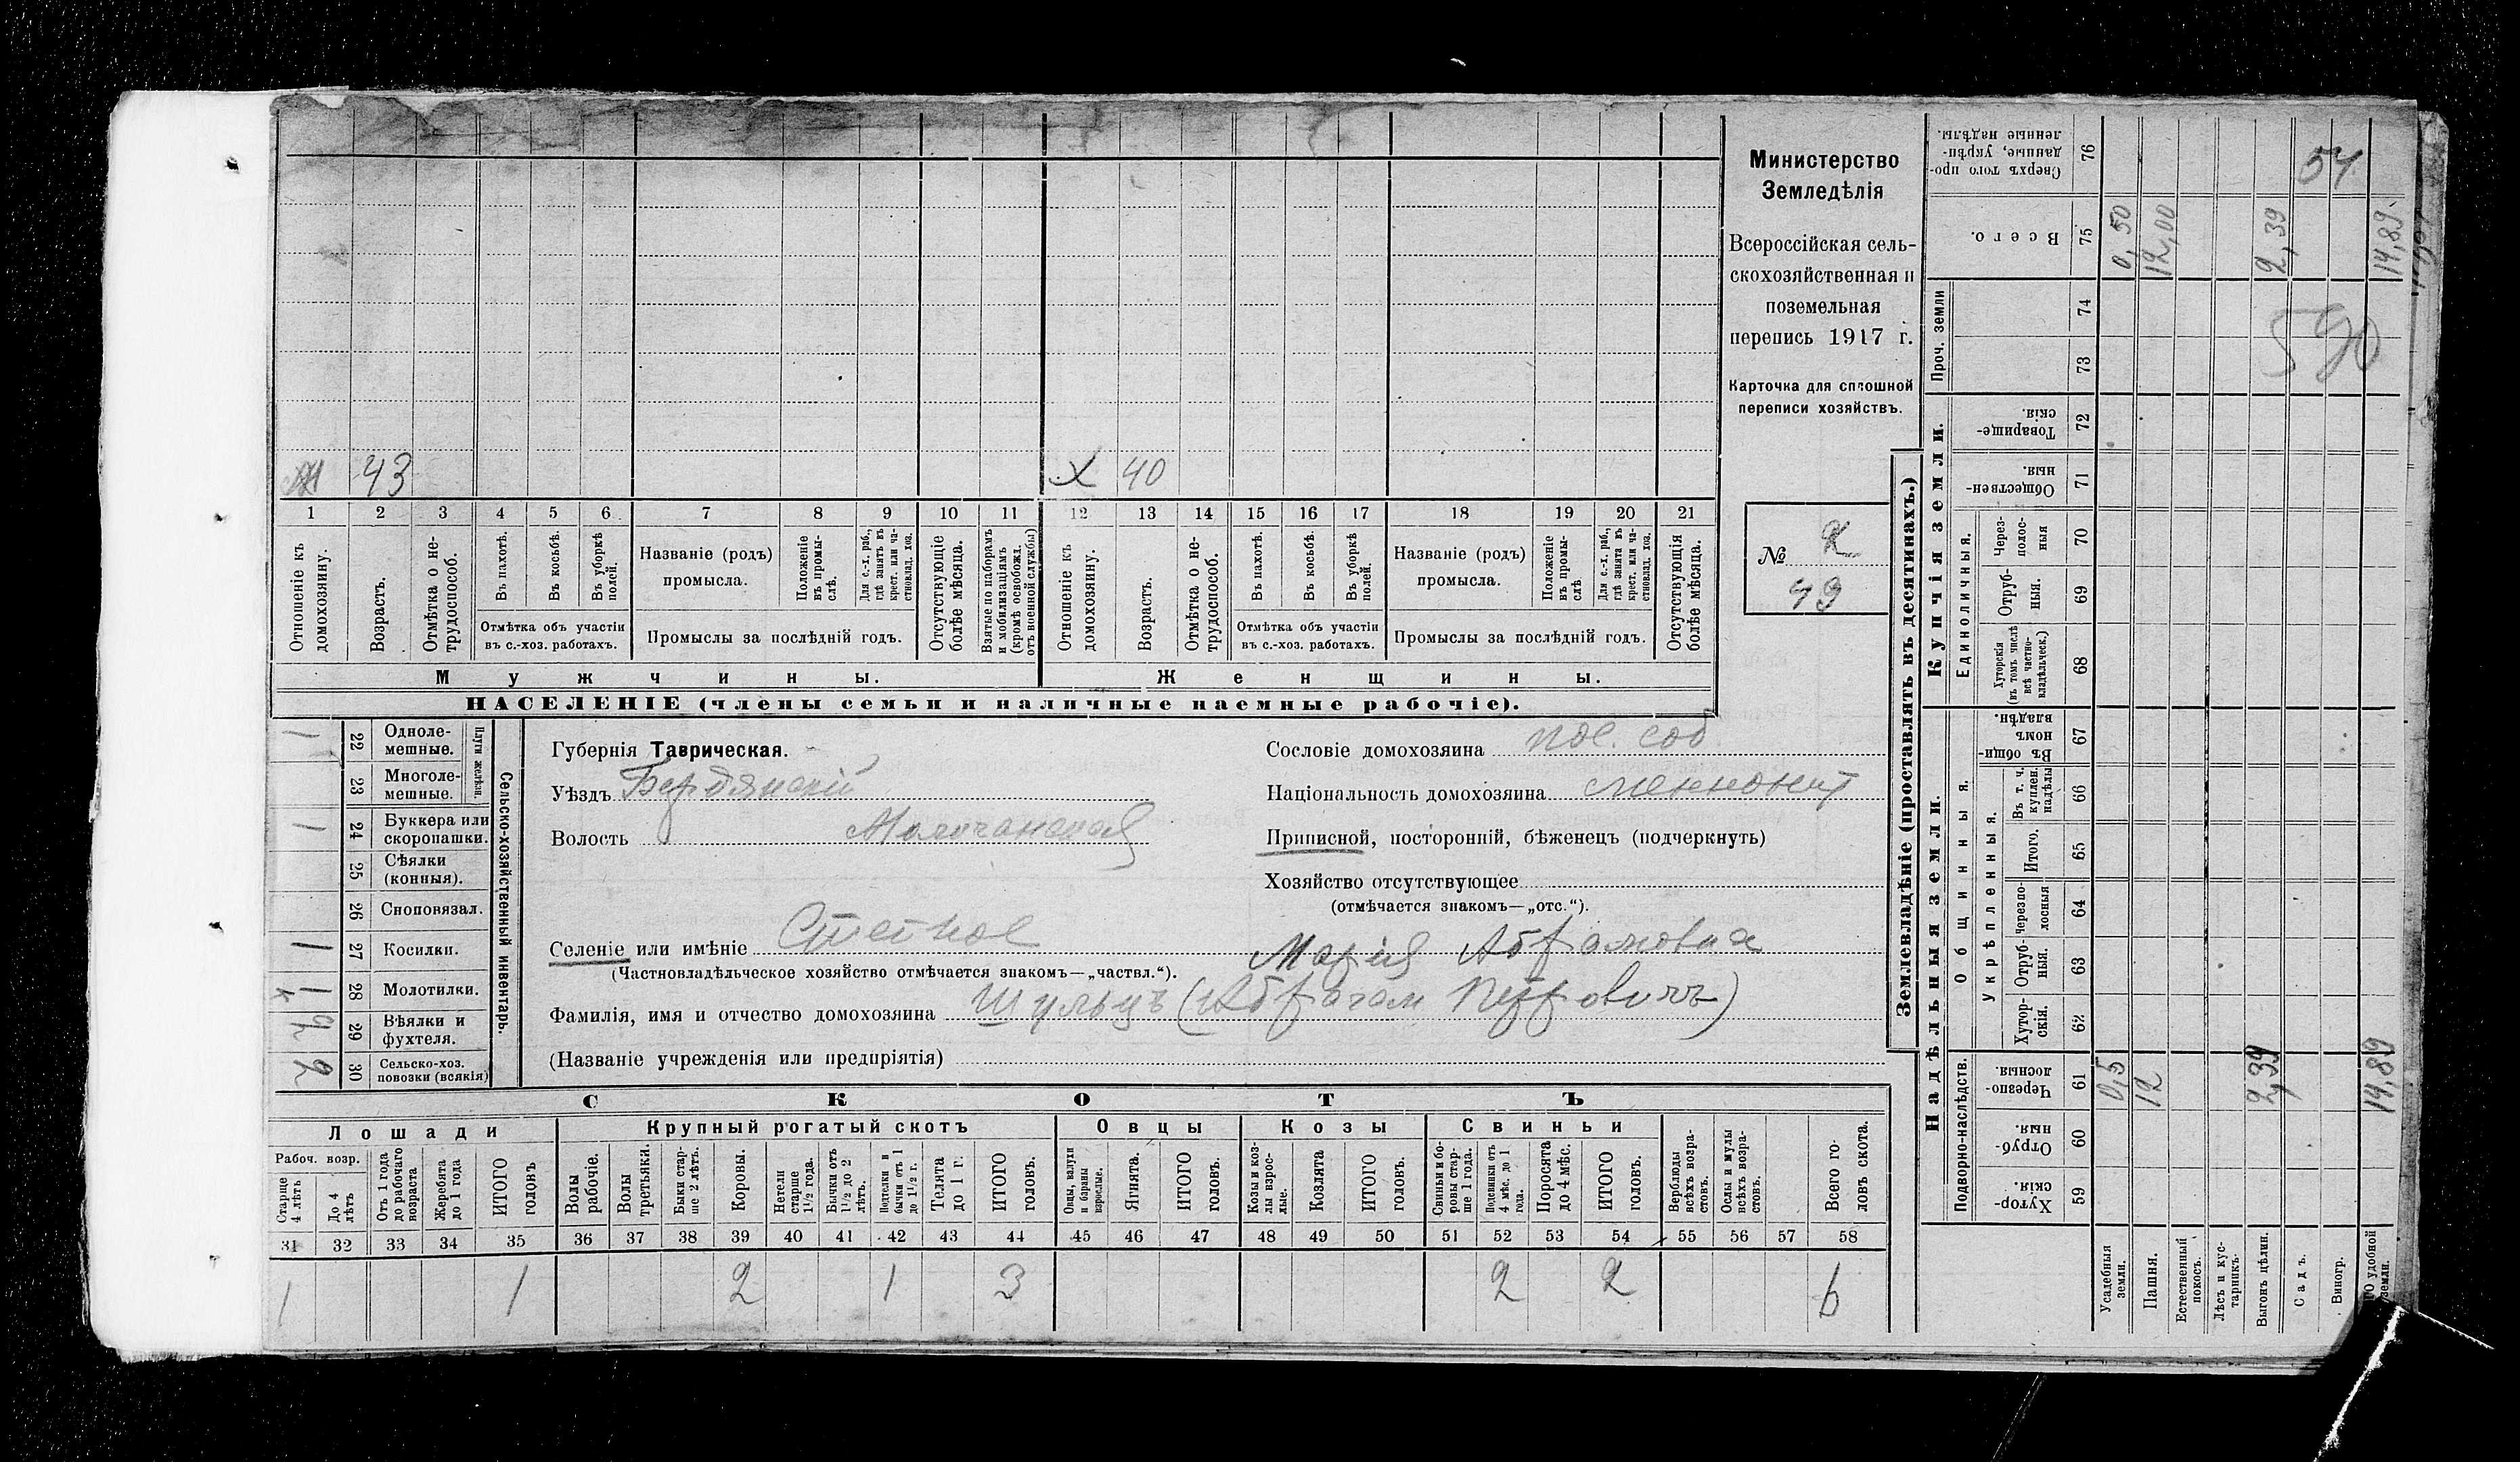 М 43 X 40
1 2 3 4 5 6 7 8 9 10 11 12 13 14 15 16 17 18 19 20 21
Отношеніе къ домохозяину.
Возрастъ.
Отмѣтка о нетрудоспособ.
Въ пахотѣ.
Въ косьбѣ.
Въ уборкѣ полей.
Отмѣтка объ участіи
въ с.-хоз. работахъ.
Названіе (родъ)
промысла.
Положеніе въ промыслѣ.
Для с.-х. раб., гдѣ занятъ въ крест. или частновлад. хоз.
Промыслы за послѣдній годъ.
Отсутствующіе болѣе мѣсяца.
Взятые по наборамъ и мобилизаціямъ (кромѣ освобожд. отъ военной службы)
Отношеніе къ домохозяину.
Возрастъ.
Отмѣтка о нетрудоспособ.
Въ пахотѣ.
Въ косьбѣ.
Въ уборкѣ полей.
Отмѣтка объ участіи
въ с.-хоз. работахъ.
Названіе (родъ)
промысла.
Положеніе въ промыслѣ
Для с.-х. раб., гдѣ занята въ крест. или частновлад. хоз.
Промыслы за послѣдній годъ.
Отсутствующія болѣе мѣсяца.
Мужчины. Женщины.
НАСЕЛЕНІЕ (члены семьи и наличные наемные рабочіе).
Министерство
Земледѣлія
Всероссійская сель-
скохозяйственная и
поземельная
перепись 1917 г.
Карточка для сплошной
переписи хозяйствъ.
№
49
Сельско-хозяйственный инвентарь.
Плуги желѣзн.
1 22 Одноле-
мешные.
23 Многоле-
мешные.
1 24 Буккера или
скоропашки.
25 Сѣялки
(конныя).
26 Сноповязал.
1 27 Косилки.
1 28 Молотилки.
29 Вѣялки и
фухтеля.
2 30 Сельско-хоз.
повозки (всякія)
Губернія Таврическая.
Уѣздъ Бердянскій
Волость Молочанская
Селеніе или имѣніе Степное
(Частновладѣльческое хозяйство отмѣчается знакомъ—„частвл.“).
Сословіе домохозяина пос. соб
Національность домохозяина меннонит
Приписной, посторонній, бѣженецъ (подчеркнуть)
Хозяйство отсутствующее
(отмѣчается знакомъ—„отс.“).
Марія Абрамовна
Фамилія, имя и отчество домохозяина Шульцъ (Абрагам Петровичъ)
(Названіе учрежденія или предпріятія)
СКОТЪ
Лошади Крупный рогатый скотъ Овцы Козы Свиньи
Рабоч. возр.
Старше 4 лѣтъ
До 4 лѣтъ
Отъ 1 года до рабочаго возраста
Жеребята до 1 года
ИТОГО головъ
Волы рабочіе.
Волы третьяки.
Быки старше 2 лѣтъ.
Коровы.
Нетели старше 1½ года.
Бычки отъ 1½ до 2 лѣтъ.
Подтелки и бычки отъ 1 до 1½ г.
Телята до 1 г.
ИТОГО головъ.
Овцы, валухи и бараны взрослые.
Ягнята.
ИТОГО головъ.
Козы и козлы взрослые.
Козлята
ИТОГО головъ.
Свиньи и боровы старше 1 года.
Подсвинки отъ 4 мѣс. до 1 года.
Поросята до 4 мѣс.
ИТОГО головъ.
Верблюды всѣхъ возрастовъ.
Ослы и мулы всѣхъ возрастовъ.
Всего головъ скота.
31 32 33 34 35 36 37 38 39 40 41 42 43 44 45 46 47 48 49 50 51 52 53 54 55 56 57 58
1 1 2 1 3 2 2 6
Землевладѣніе (проставлять въ десятинахъ.)
Купчія земли.
Надѣльныя земли.
Проч. земли
Единоличныя.
Общинныя.
Укрѣпленныя.
Подворно-наслѣдств.
Сверхъ того проданные, укрѣпленные надѣлы. 76
Всего. 75 0,50 12,00 2,39 14,89
74
73
Товарищескія. 72
Общественныя. 71
Черезполосныя 70
Отрубныя. 69
Хуторскія (въ томъ числѣ всѣ частновладѣльческ.) 68
Въ общинномъ владѣн. 67
Въ т. ч. куплен. надѣлы 66
Итого. 65
Черезполосныя 64
Отрубныя. 63
Хуторскія. 62
Черезполосныя. 61 0,5 12 2,39 14,89
Отрубныя. 60
Хуторскія. 59
Усадебныя земли.
Пашня.
Естественный покосъ.
Лѣсъ и кустарникъ.
Выгонъ цѣлин.
Садъ.
Виногр.
удобной земли.
54
590